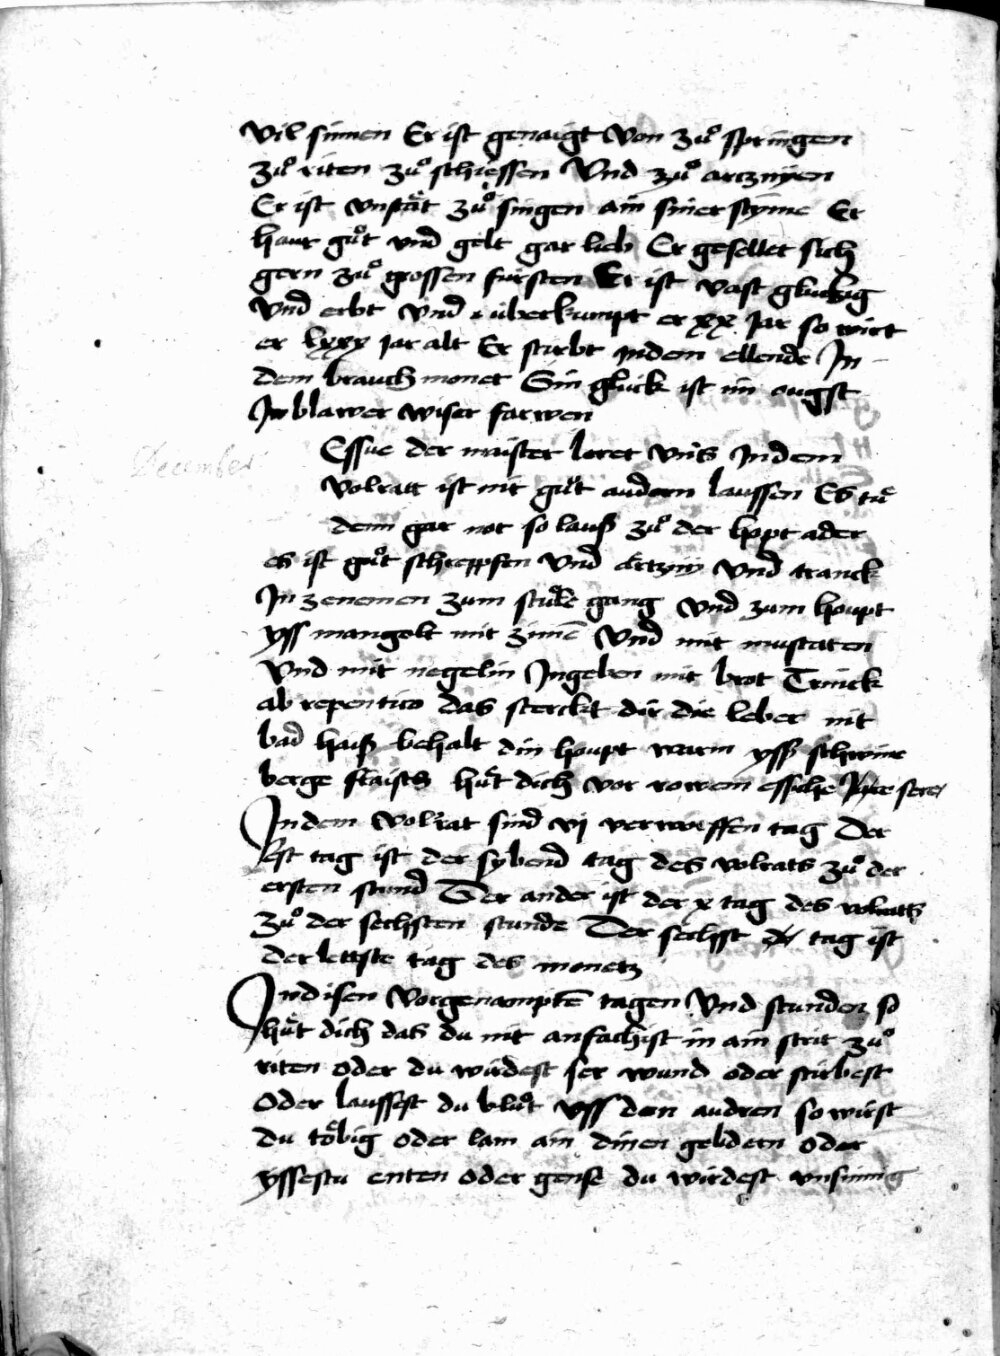 vil sinnen Er ist genaigt von zuͦ springen
zuͦ riten zuͦ schiessen Vnd zuͦ artznyen
Er ist vnstaͤt zuͦ singen ain siner stÿme Er
haut guͦt vnd gelt gar lieb Er gesellet sich
gern zuͦ grossen fursten Er ist vast gluckig
Vnd erbt Vnd überkumpt er xx Jar so wirt
er lxxx Jar alt Er stirbt Indem ellende In
dem brauch monet Sin gluck ist im ougst
In blawer wiser farwen
December
Essue der maister leret vns Indem
Volratt ist nit guͦt audern laussen Es tuͤ
denn gar not so lauß zuͦ der hopt ader
es ist guͦt schreppfen vnd artzny Vnd tranck
In zenemen zum stuͦle gang Vnd zum houpt
yss mangolt mit zimē Vnd mit muscaten
Vnd mit negelin Ingeben mit brot Trinck
ab repentico das sterckt dir die leber nit
bad haiß behalt din houpt warm yss schwine
berge flaisch huͤt dich vor rowem essich
Indem Volrat sind vj verworffen tag Der
Erst tag ist der sybend tag des volrats zuͦ der
ersten stund Der ander ist der x tag des volratts
zuͦ der sechsten stunde Der sechst tag ist
der lettste tag des monetz
Indisen Vorgenampten tagen Vnd stunden so
huͤt dich das du nit anfachist in ain strit zuͦ
riten oder du wirdest ser wund oder stirbest
Oder laussest du bluͦt vss den audren so wirst
du toͤbig oder lam ain dinen gelidern oder
yssestu enten oder gense du wirdest vnsinnig